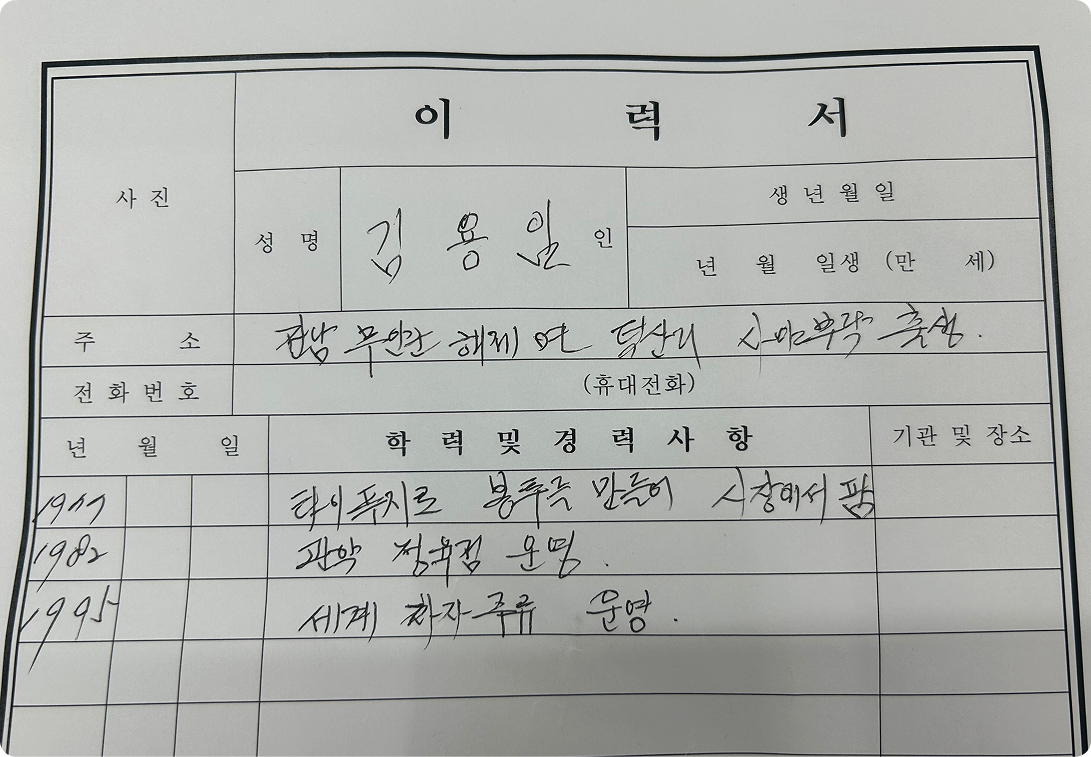 이 력 서
사 진
성 명 김 용 일 인
생 년 월 일
년 월 일생 (만 세)
주 소 전남 무안군 해제면 덕산리 사야부락 출생.
전 화 번 호 (휴대전화)
년 월 일 학 력 및 경 력 사 항 기관 및 장소
1977 타이푸지로 봉투를 만들어 시장에서 팜
1982 관악 정육점 운영.
1995 세계 과자·주류 운영.